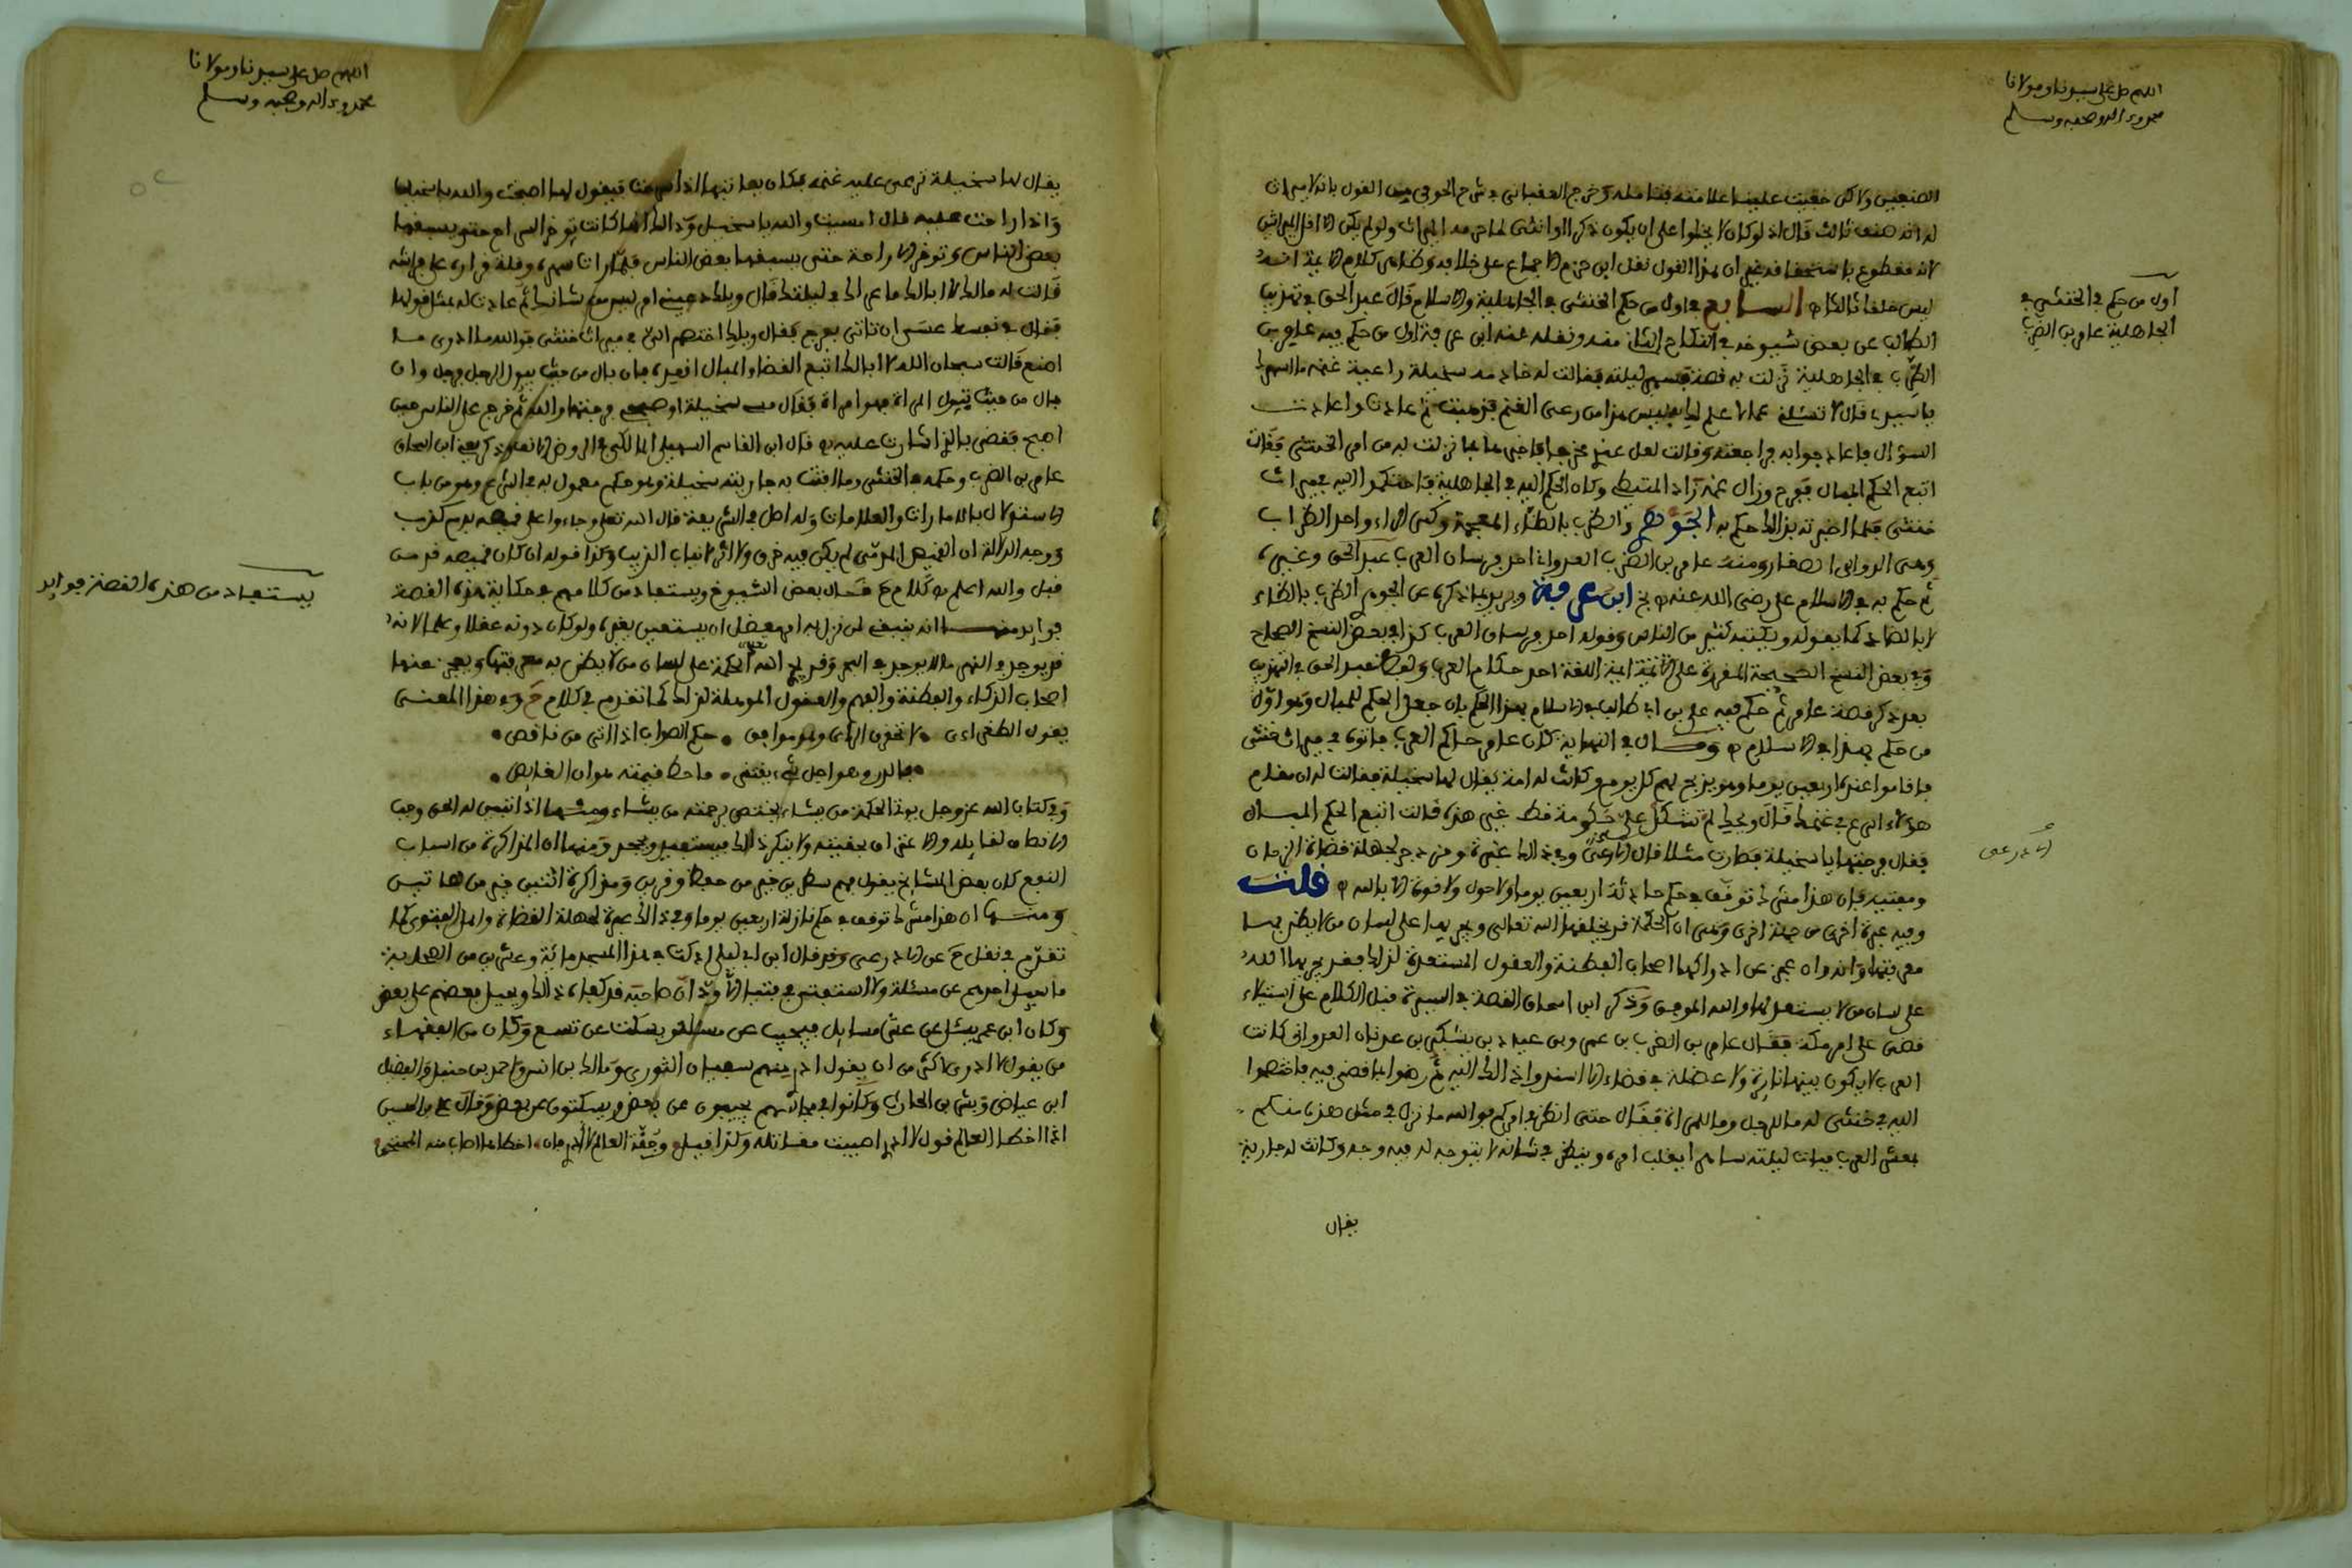 اللهم صل على سيدنا ومولانا
محمد وءاله وصحبه وسلم
الصنفين ولاكن خفيت علينا علامته فتامله وخرج العقباني في شرح الحوفي من القول بانه لا ميراث
له انه صنف ثالث قال اذ لو كان لا يخلوا على ان يكون ذكرا او انثى لما حرمه الميراث ولو لم يكن الا اقل الميراثين
لانه مقطوع باستحقاقه غير ان هذا القول نقل ابن حزم الاجماع على خلافه وظاهر كلام الايمة انه
ليس خلقا ثالثا السابع في اول من حكم في الخنثى في الجاهلية والاسلام قال عبد الحق في تهذيب
الطالب عن بعض شيوخه في النكاح الثاني منه ونقله عنه ابن عرفة اول من حكم فيه عامر بن
الظرب في الجاهلية نزلت به قصة فسهر ليلته فقالت له خادمه سخيلة راعية غنمه ما اسهرك
يا سيدي قال لا تسئلي عما لا علم لك به ليس هذا من رعي الغنم فذهبت ثم عادت واعادت
السؤال فاعاد جوابه فراجعته وقالت لعل عندي مخرجا فاخبرها بما نزلت به من امر الخنثى فقالت
اتبع الحكم المبال ففرح وزال غمه زاد المتيطي وكان الحكم اليه في الجاهلية فاحتكموا اليه في ميراث
خنثى فلما اخبرته بذلك حكم به الجوهري والظرب بالظاء المعجمة وكسر الراء واحد الظراب
وهي الروابي الصغار ومنه عامر بن الظرب العدواني احد فرسان العرب عبد الحق وغيره
ثم حكم به في الاسلام علي رضي الله عنه ابن عرفة ويريد بما ذكره عن الجوهري الظرب بالظاء
لا بالضاد كما يقوله ويكتبه كثير من الناس وقوله احد فرسان العرب كذا في بعض النسخ الصحاح
وفي بعض النسخ الصحيحة المقروءة على الايمة ايمة اللغة احد حكام العرب ولفظ عبد الحق في التهذيب
بعد ذكر قصة عامر ثم حكم فيه علي بن ابي طالب في الاسلام بهذا الحكم بان جعل الحكم للمبال وهو اول
من حكم بهذا في الاسلام وقال في النهاية كان عامر حاكم العرب فاتوه في ميراث خنثى
فاقاموا عنده اربعين يوما وهو يذبح لهم كل يوم وكانت له امة يقال لها سخيلة فقالت له ان مقام
هؤلاء اسرع في غنمك قال ويحك لم تشكل علي حكومة قط غير هذه قالت اتبع الحكم المبال
فقال فرجتها يا سخيلة فصارت مثلا قال الاذرعي وفي ذلك عبرة ومزدجر لجهلة قضاة الزمان
ومفتيه فان هذا مشرك توقف في حكم حادثة اربعين يوما ولا حول ولا قوة الا بالله قلت
وفيه عبرة اخرى من جهة اخرى وهي ان الحكمة قد يخلقها الله تعالى ويجريها على لسان من لا يظن بها
معرفتها وانه وان عجز عن ادراكها اصحاب الفطنة والعقول المستعدة لذلك فقد يجريها الله
على لسان من لا يستعد لها والله الموفق وذكر ابن اسحاق القصة في السيرة قبل الكلام على استيلاء
قصي على امر مكة فقال عامر بن الظرب بن عمرو بن عياد بن يشكر بن عدوان العدواني كانت
العرب لا يكون بينها نائرة ولا عضلة في قضاء الا اسندوا ذلك اليه ثم رضوا بما قضى فيه فاختصموا
اليه في خنثى له ما للرجل وما للمراة فقال حتى انظر في امركم فوالله ما نزل بي مثل هذه منكم
معشر العرب فبات ليلته ساهرا يقلب امره وينظر في شانه لا يتوجه له فيه وجه وكانت له جارية
يقال
اول من حكم في الخنثى في
الجاهلية عامر بن الظرب
الاذرعي
اللهم صل على سيدنا ومولانا
محمد وءاله وصحبه وسلم
يقال لها سخيلة ترعى عليه غنمه فكان يعاتبها اذا سرحت فيقول لها اصبحت والله يا سخيل
واذا راحت عليه قال امسيت والله يا سخيل وذلك انها كانت تؤخر السراح حتى يسبقها
بعض الناس وتؤخر الاراحة حتى يسبقها بعض الناس فلما رات سهره وقلة قراره على فراشه
قالت له مالك لا ابا لك ما عراك في ليلتك قال ويلك دعيني امر ليس من شانك ثم عادت له بمثل قولها
فقال في نفسه عسى ان تاتي بفرج فقال ويلك اختصم الي في ميراث خنثى فوالله ما ادري ما
اصنع قالت سبحان الله لا ابا لك اتبع القضاء المبال اقعده فان بال من حيث يبول الرجل فرجل وان
بال من حيث تبول المراة فهو امراة فقال مسي سخيلة او صبحي فرجتها والله ثم خرج على الناس حين
اصبح فقضى بالذي اشارت عليه به قال ابو القاسم السهيلي المالكي في الروض الانف وذكر يعني ابن اسحاق
عامر بن الظرب وحكمه في الخنثى وما افتته به جاريته سخيلة وهو حكم معمول به في الشرع وهو من باب
الاستدلال بالامارات والعلامات وله اصل في الشريعة قال الله تعلى وجاءوا على قميصه بدم كذب
ووجه الدلالة ان القميص المدمى لم يكن فيه خرق ولا اثر لانياب الذيب وكذا قوله ان كان قميصه قد من
قبل والله اعلم كلام قال بعض الشيوخ ويستفاد من كلامهم في حكاية هذه القصة
فوايد منها انه ينبغي لمن نزل به امر معضل ان يستعين بغيره ولو كان دونه عقلا وعلما لانه
قد يوجد في النهر ما لا يوجد في البحر وقد يجري الله تعلى الحكمة على لسان من لا يظن به معرفتها ويعجز عنها
اصحاب الذكاء والفطنة والفهم والعقول الموصلة لذلك كما تقدم في كلام ح وفي هذا المعنى
يقول الطغراءي لا تحقرن الراي وهو موافق حكم الصواب اذا اتى من ناقص
فالدر وهو اجل شيء يقتنى ما حط قيمته هوان الغائص
وفي كتاب الله عز وجل يوتي الحكمة من يشاء يختص برحمته من يشاء ومنها اذا تبين له الحق وجب
الانصاف لقايله والاعتراف بحقيته ولا ينكر ذلك فيستفيد ويجحد ومنها ان المذاكرة من اسباب
النفع كان بعض المشايخ يقول فهم سطرين خير من حفظ وقرين ومذاكرة اثنين خير من هاتين
ومنها ان هذا مشرك توقف في حكم نازلة اربعين يوما وفي ذلك عبرة لجهلة القضاة واهل الفتوى كما
تقدم في نقل ح عن الاذرعي وقد قال ابن ابي ليلى ادركت في هذا المسجد مائة وعشرين من الصحابة
ما يسئل احدهم عن مسئلة ولا استفتي في فتيا الا ود ان صاحبه قد كفاه ذلك ويحيل بعضهم على بعض
وكان ابن عمر يسئل عن عشر مسايل فيجيب عن مسئلة ويسكت عن تسع وكان من الفقهاء
من يقول لا ادري اكثر من ان يقول ادري منهم سفيان الثوري ومالك بن انس واحمد بن حنبل والفضيل
ابن عياض وبشر بن الحارث وكانوا في مجالسهم يجيبون عن بعض ويسكتون عن بعض وقال علي بن الحسين
اذا اخطا العالم قول لا ادري اصيبت مقاتله ولذا قيل وجنة العالم لا ادري فان اخطاها اصاب منه المحتجى
يستفاد من هذه القصة فوايد